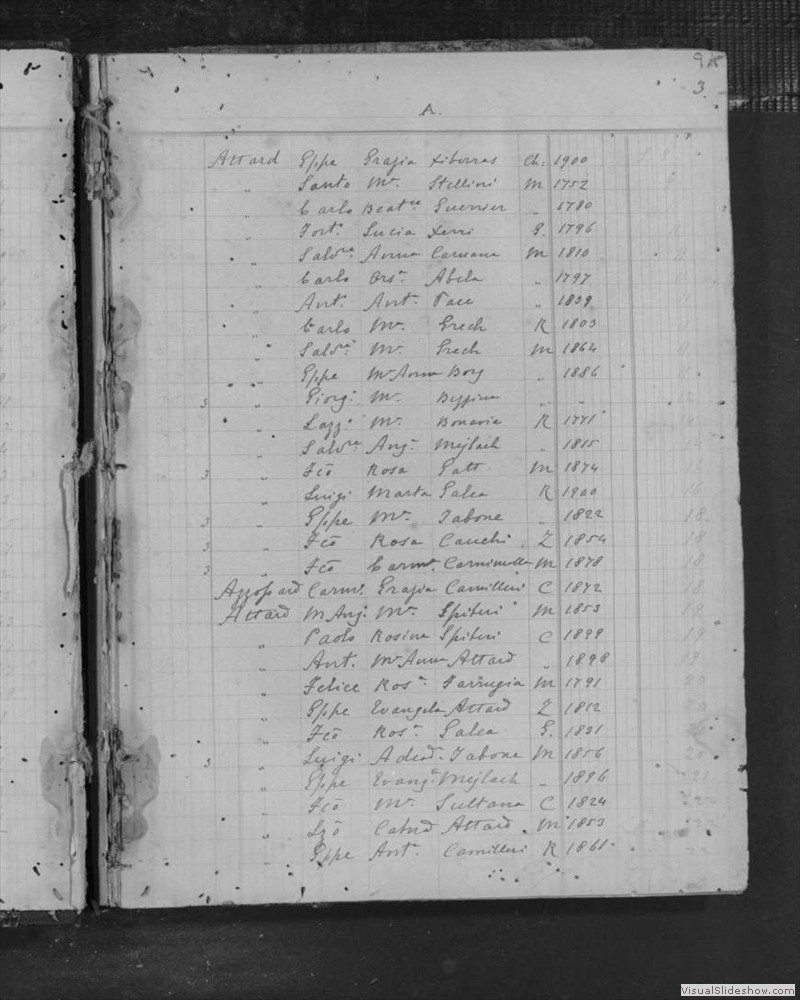 3
A.
Attard Gppe Grazia Xiberras Ch: 1900
" Santo Ma. Stellini M 1752
" Carlo Beatce Guerrier " 1780
" Fort. Lucia Xerri G. 1796
" Salvre Anna Caruana M 1810
" Carlo Ors. Abela " 1797
" Ant. Ant. Pace " 1839
" Carlo Ma. Grech R 1803
" Salvre Ma. Grech M 1864
" Gppe Ma Anna Borg " 1886
3 " Giorg. Ma. " "
" Lazz. Ma. Bonavia R 1771
" Salvre Ang. Mejlach " 1815
3 " Fco Rosa Gatt M 1874
" Luigi Marta Galea R 1900
3 " Gppe Ma. Tabone " 1822
3 " Fco Rosa Cauchi Z 1854
3 " Fco Carm. M 1878
Azzopard Carm. Grazia Camilleri C 1872
Attard M Ang. Ma. Spiteri M 1853
" Paolo Rosina Spiteri C 1899
" Ant. Ma Anna Attard " 1898
" Felice Rosa Farrugia M 1791
" Gppe Evangela Attard Z 1812
" Fco Rosa Galea G. 1831
3 " Luigi Adeod. Tabone M 1856
" Gppe Evanga Mejlach " 1896
" Fco Ma. Sultana C 1824
" Attard M 1853
" Gppe Ant. Camilleri R 1861
VisualSlideshow.com